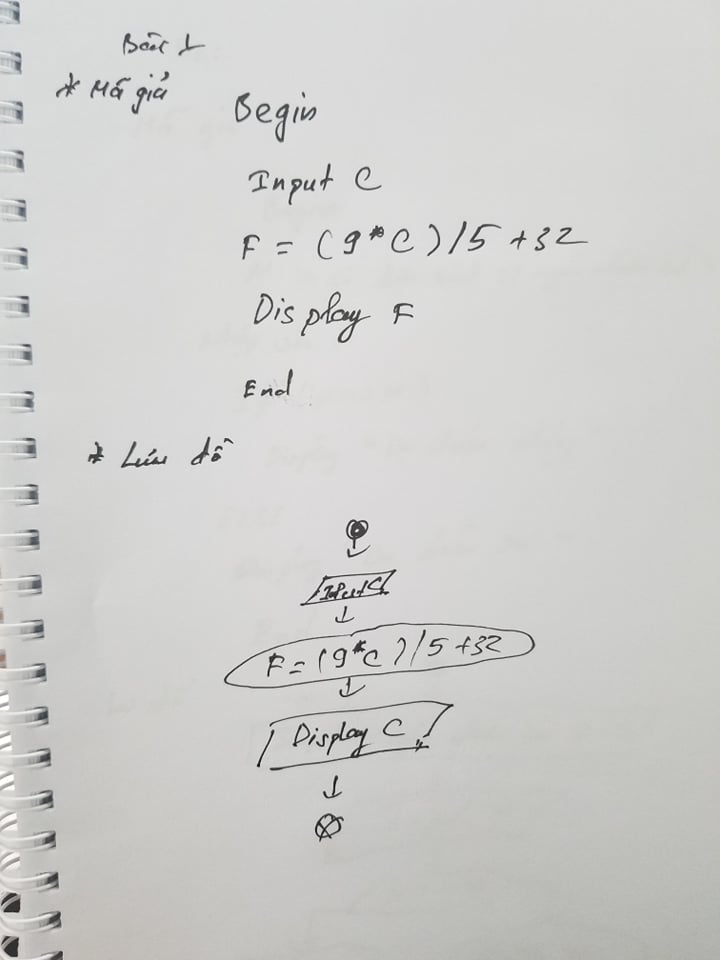 Bài 1
* Mã giả
Begin
Input C
F = (9*C)/5 +32
Display F
End
* Lưu đồ
Input C
F = (9*C)/5 +32
Display C